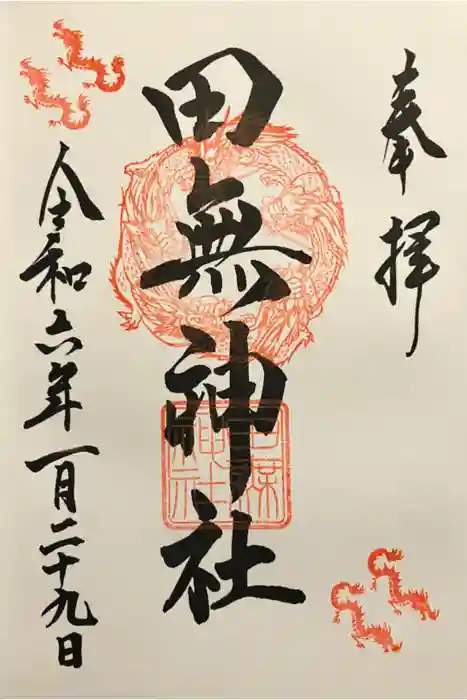 奉拝
田無神社
令和六年一月二十九日
田無神社